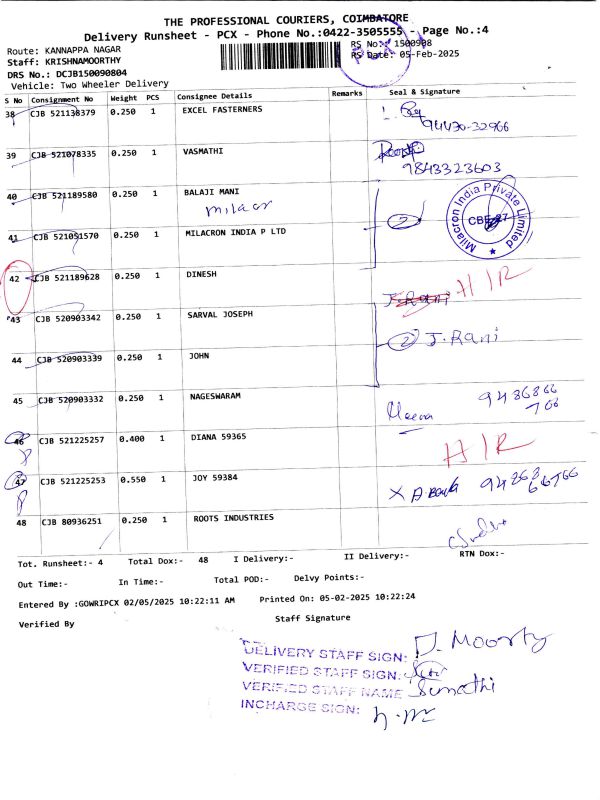 THE PROFESSIONAL COURIERS, COIMBATORE
Delivery Runsheet - PCX - Phone No.:0422-3505555 - Page No.:4
Route: KANNAPPA NAGAR
RS No: 1500908
Staff: KRISHNAMOORTHY
RS Date: 05-Feb-2025
DRS No.: DCJB150090804
Vehicle: Two Wheeler Delivery
S No Consignment No Weight PCS Consignee Details Remarks Seal & Signature
38 CJB 521138379 0.250 1 EXCEL FASTERNERS
94430-32966
39 CJB 521078335 0.250 1 VASMATHI
9843323603
40 CJB 521189580 0.250 1 BALAJI MANI
milacr
2
Milacron India Private Limited
CBE
41 CJB 521051570 0.250 1 MILACRON INDIA P LTD
42 CJB 521189628 0.250 1 DINESH
J.Rani H/R
43 CJB 520903342 0.250 1 SARVAL JOSEPH
2 J.Rani
44 CJB 520903339 0.250 1 JOHN
45 CJB 520903332 0.250 1 NAGESWARAM
Meena 9486866
766
46 CJB 521225257 0.400 1 DIANA 59365
H/R
47 CJB 521225253 0.550 1 JOY 59384
X 94868
66766
48 CJB 80936251 0.250 1 ROOTS INDUSTRIES
Tot. Runsheet:- 4 Total Dox:- 48 I Delivery:- II Delivery:- RTN Dox:-
Out Time:- In Time:- Total POD:- Delvy Points:-
Entered By :GOWRIPCX 02/05/2025 10:22:11 AM Printed On: 05-02-2025 10:22:24
Verified By Staff Signature
DELIVERY STAFF SIGN: D. Moorty
VERIFIED STAFF SIGN:
VERIFIED STAFF NAME Sumathi
INCHARGE SIGN: